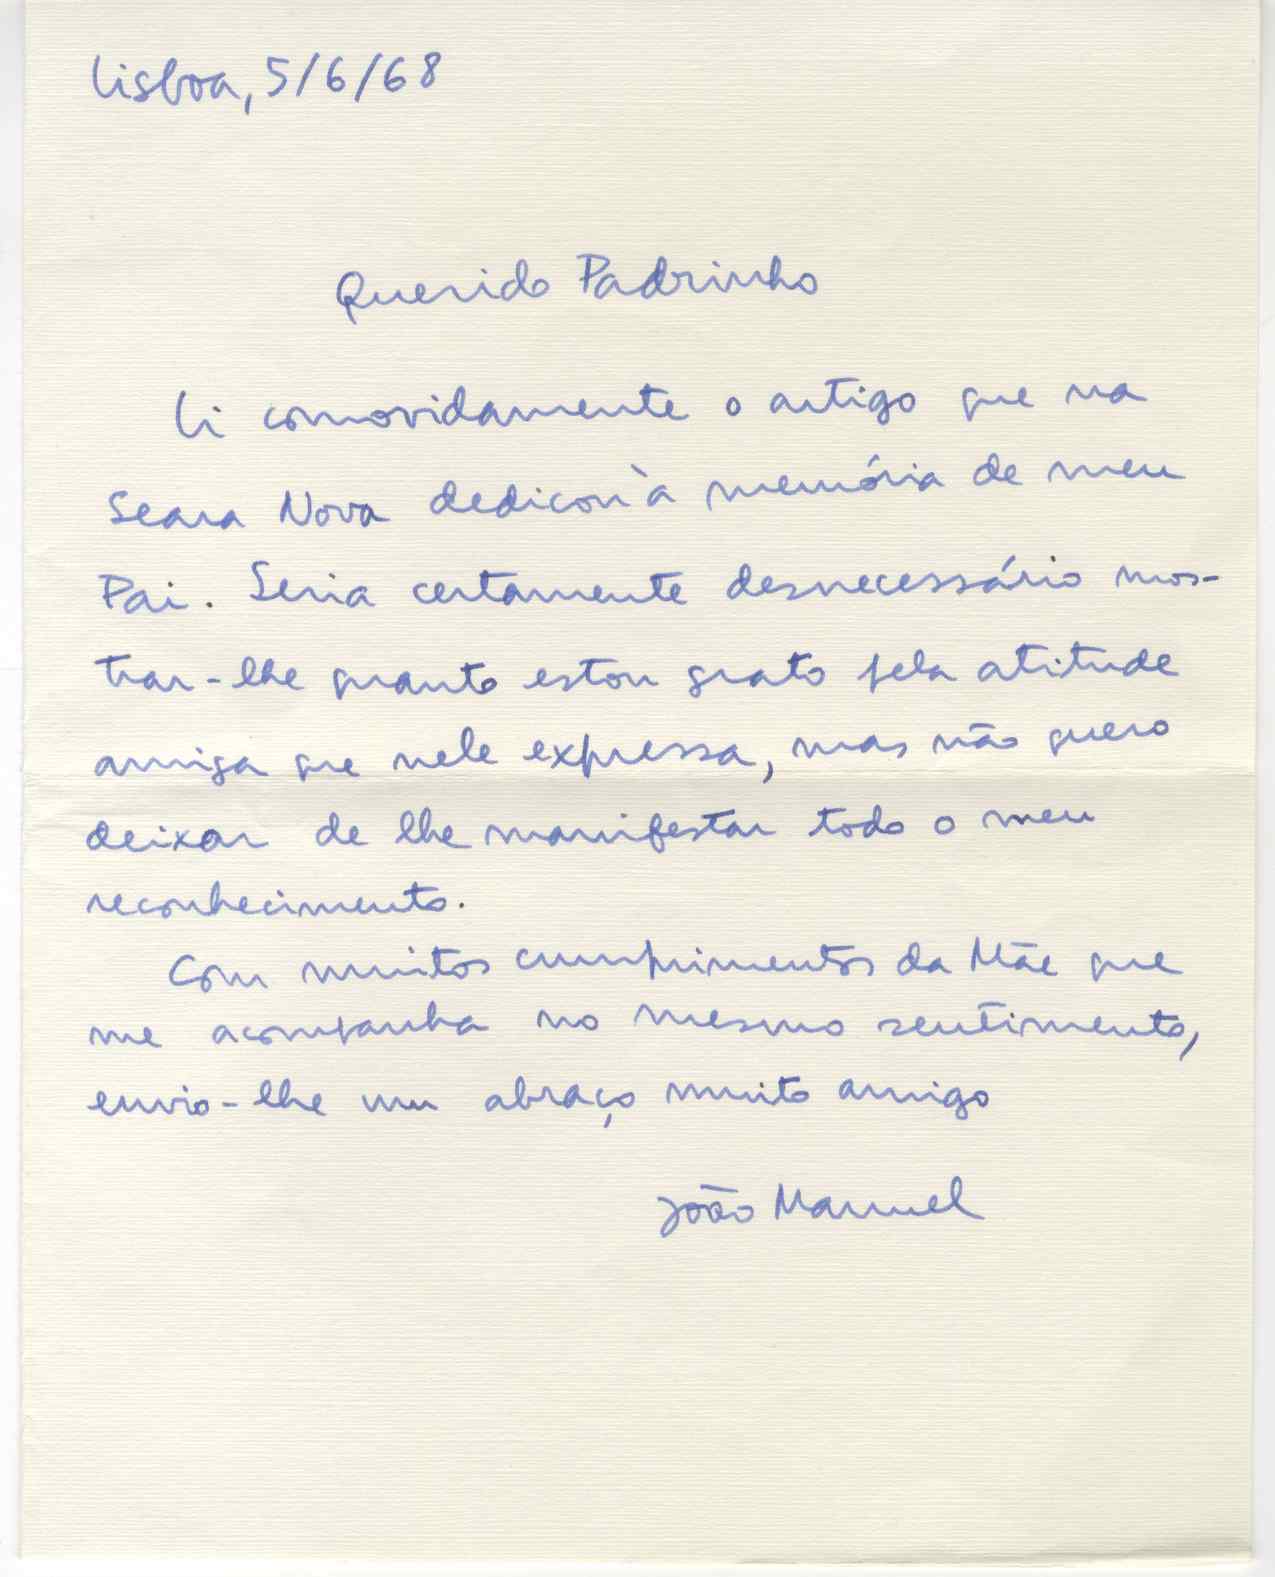 Lisboa, 5/6/68
Querido Padrinho
Li comovidamente o artigo que na
Seara Nova dedicou à memória de meu
Pai. Seria certamente desnecessário mos-
trar-lhe quanto estou grato pela atitude
amiga que nele expressa, mas não quero
deixar de lhe manifestar todo o meu
reconhecimento.
Com muitos cumprimentos da Mãe que
me acompanha no mesmo sentimento,
envio-lhe um abraço muito amigo
João Manuel